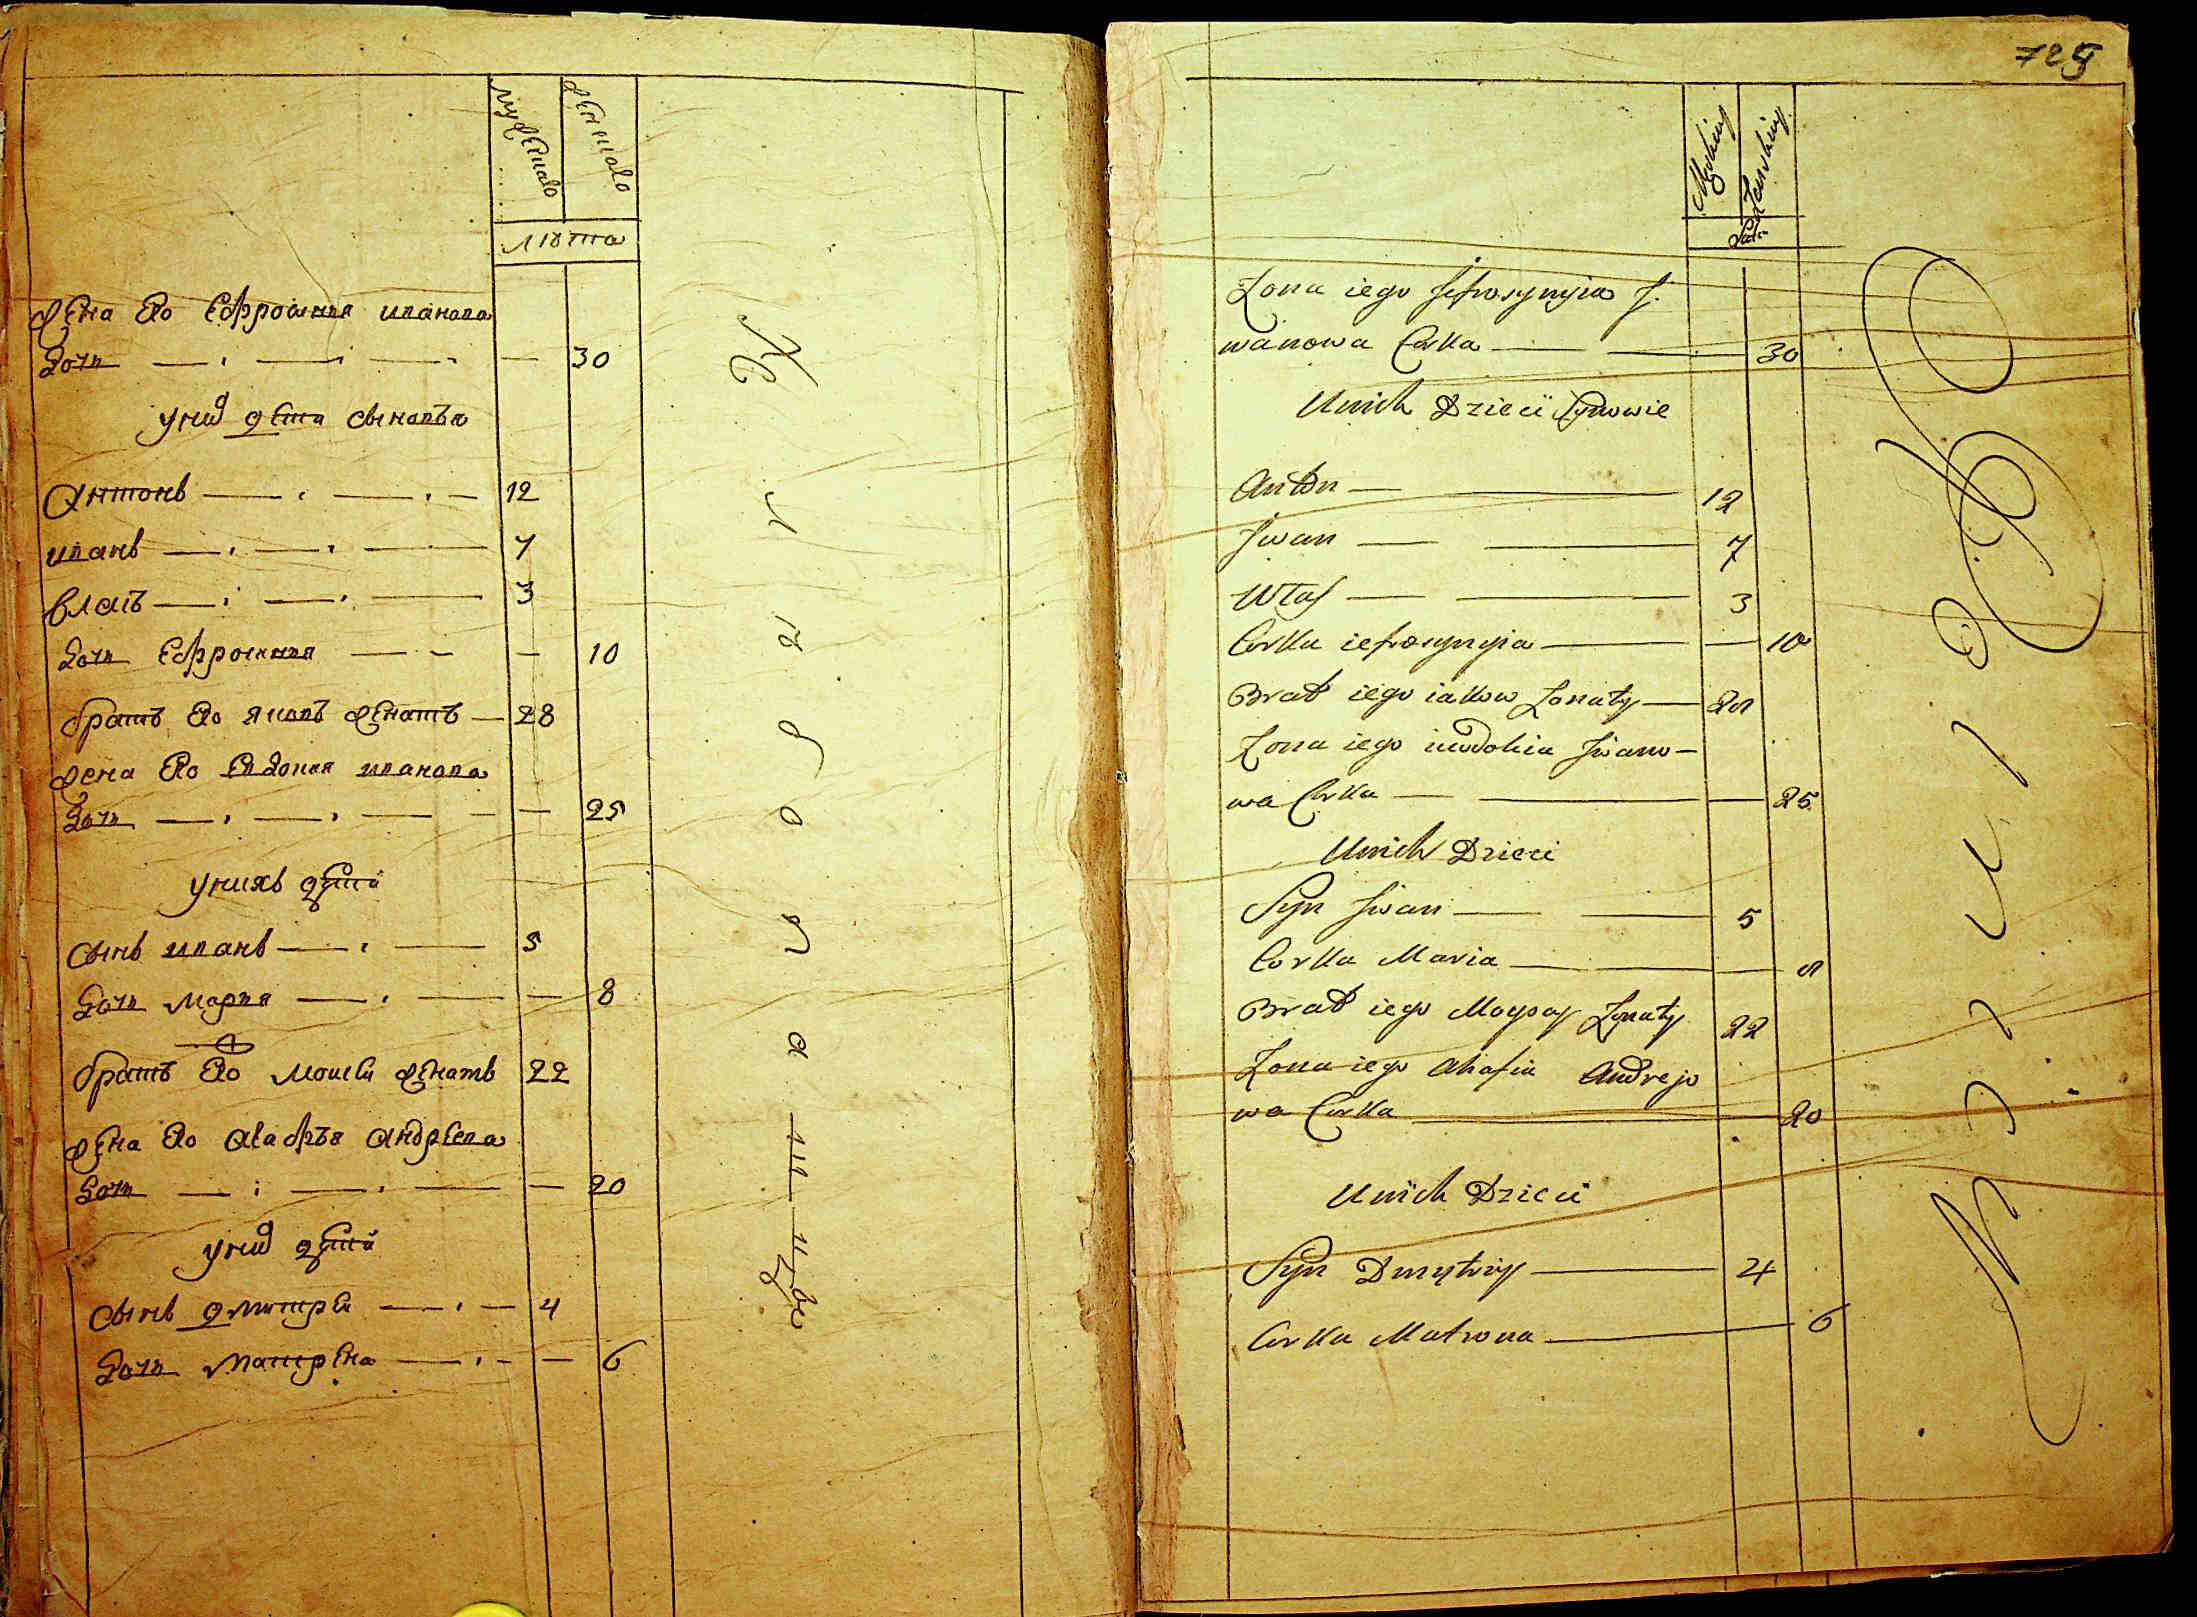 мужеска
женска
лѣта
жена его Ефросиния иванова
дочь 30
у них дети сыновья
Антонъ 12
иванъ 7
власъ 3
дочь Ефросиния 10
братъ его яковъ женатъ 28
жена его Евдокия иванова
дочь 25
у нихъ дети
сынъ иванъ 5
дочь мария 8
братъ его моисей женатъ 22
жена его агафья андреева
дочь 20
у них дети
сынъ дмитрей 4
дочь матрена 6
725
Męskiey
Żenskiey
Lata
Zona iego Jefrosynyia J.
wanowa Corka 30
Unich Dzieci Synowie
Anton 12
Jwan 7
Wlas 3
Corka iefrosynyia 10
Brat iego iakow Zonaty 28
Zona iego iewdokia Jwano-
wa Corka 25
Unich Dzieci
Syn Jwan 5
Corka Maria 8
Brat iego Moysey Zonaty 22
Zona iego Ahafia Andrejo
wa Corka 20
Unich Dzieci
Syn Dmytriy 4
Corka Matrona 6